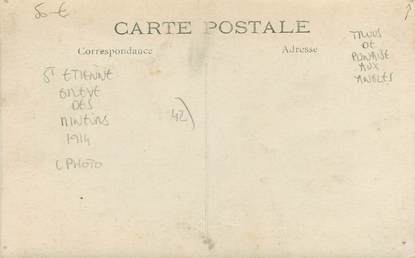 50 €
CARTE POSTALE
Correspondance
Adresse
St ETIENNE
GREVE
DES
MINEURS
1914
CPHOTO
42)
TROUS
DE
PUNAISE
AUX
ANGLES